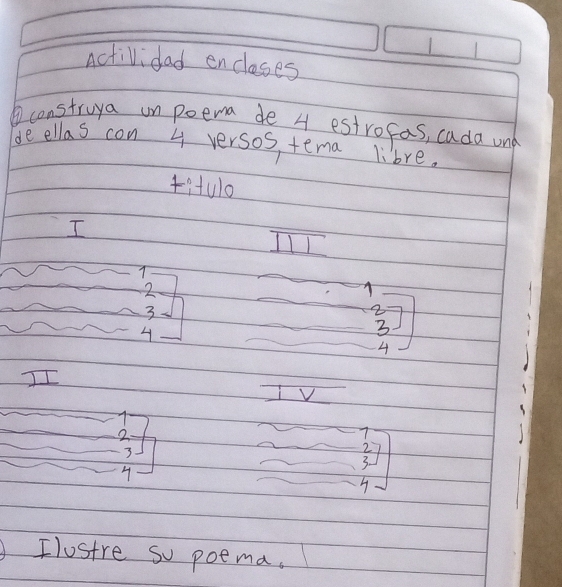 Actividad en clases
construya un poema de 4 estrofas, cada una
de ellas con 4 versos, tema libre.
titulo
I
1
2
3
4
III
1
2
3
4
II
1
2
3
4
IV
1
2
3
4
Ilustre su poema.